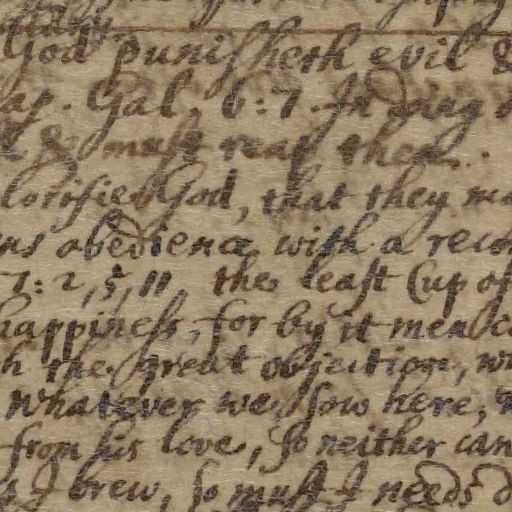 God punisheth evil &
ap. Gal. 6:7. In doing
& must reap then
lorifies God, that they ma
ns obedience with a reco
7:2,5,11, the least Cup of
happiness, for by it men ca
h the great objection, wh
whatever we sow here,
from his love, so neither can
s I brew, so must I needs d